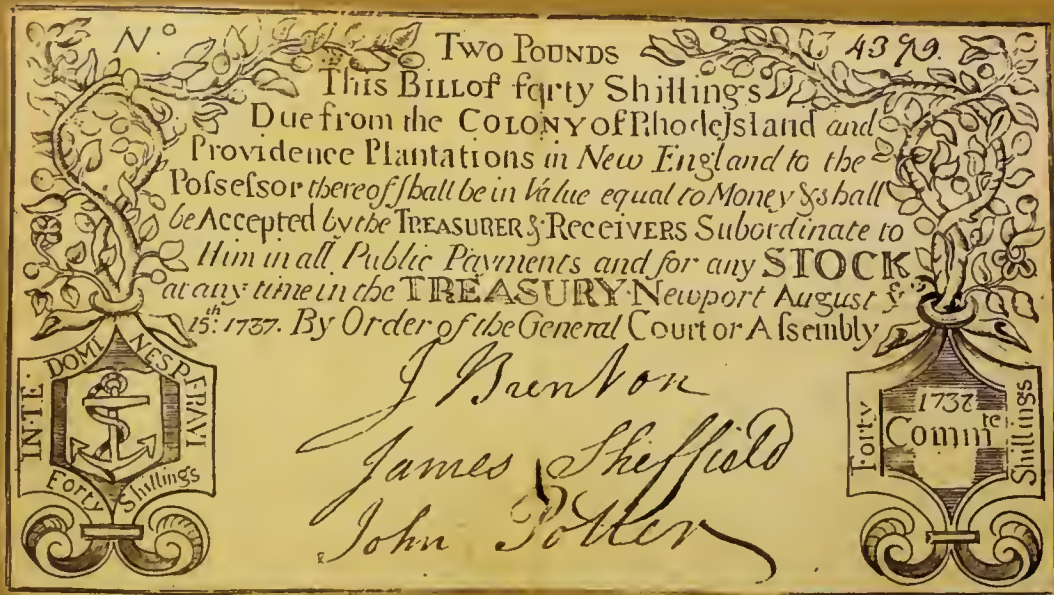 N.º TWO POUNDS 4379.
This BILL of forty Shillings
Due from the COLONY of Rhode Island and
Providence Plantations in New England to the
Poſseſsor thereof ſhall be in Value equal to Money & shall
be Accepted by the TREASURER & RECEIVERS Subordinate to
Him in all Public Payments and for any STOCK
at any time in the TREASURY. Newport August yᵉ
15.th 1737. By Order of the General Court or Aſsembly
J Brenton
James Sheffield
John Potter
IN·TE· DOMI NE SPERAVI
Forty Shillings
Forty
1737
Commte
Shillings